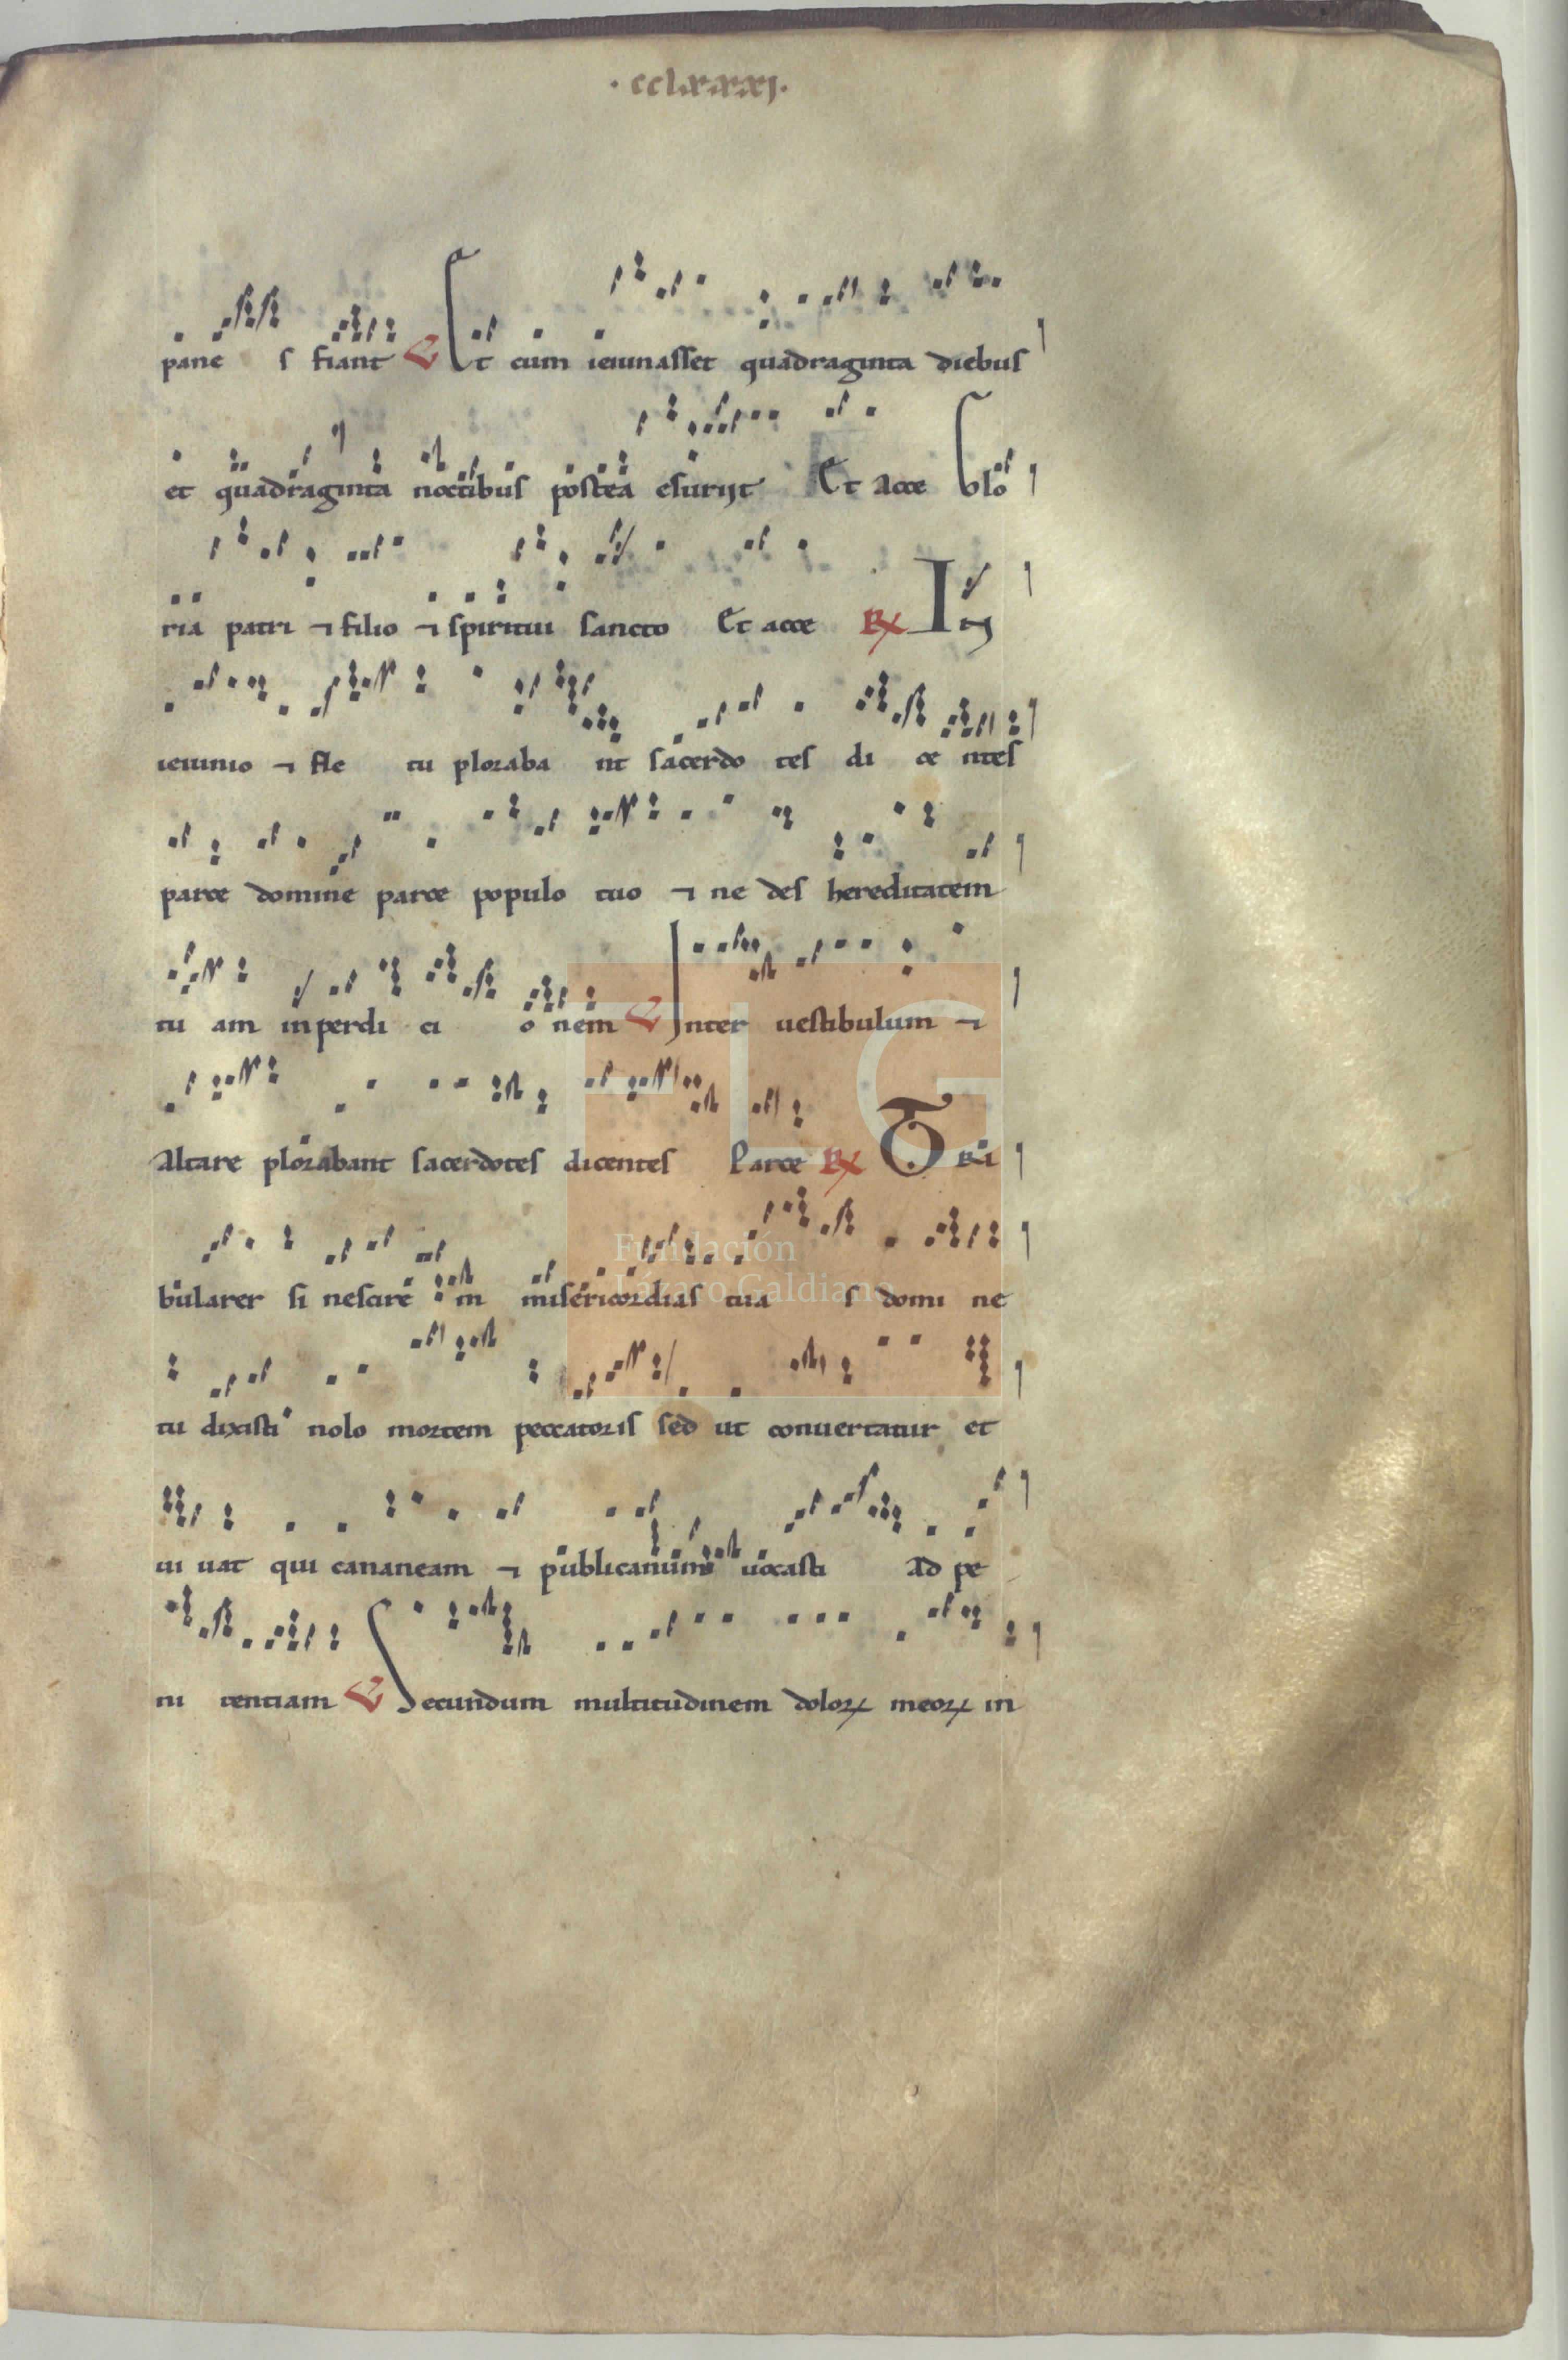 · cclxxxxj ·
pane s fiant ℣ Et cum ieiunasset quadraginta diebus
et quadraginta noctibus postea esuriit Et acce Glo
ria patri ⁊ filio ⁊ spiritui sancto Et acce ℟ In
ieiunio ⁊ fle tu ploraba nt sacerdo tes di ce ntes
parce domine parce populo tuo ⁊ ne des hereditatem
tu am in perdi ci o nem ℣ Inter uestibulum ⁊
altare plorabant sacerdotes dicentes Parce ℟ TRi
bularer si nescire m misericordias tua s domi ne
tu dixisti nolo mortem peccatoris sed ut conuertatur et
ui uat qui cananeam ⁊ publicanum uocasti ad pe
ni tentiam ℣ Secundum multitudinem doloꝝ meoꝝ in
FLG
Fundación
Lázaro Galdiano